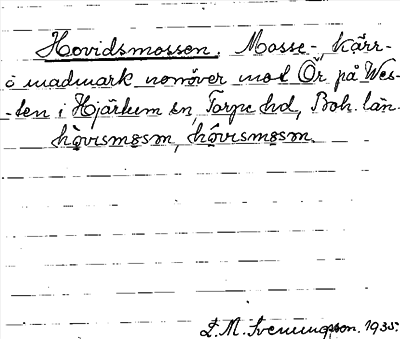 Hovidsmossen. Mosse-, kärr-
o madmark norröver mot Ör på Wes-
-ten i Hjärtum sn, Torpe hd, Boh. län.
hòvismɷsm, hôvismɷsm.
L. M. Svenungsson. 1935.